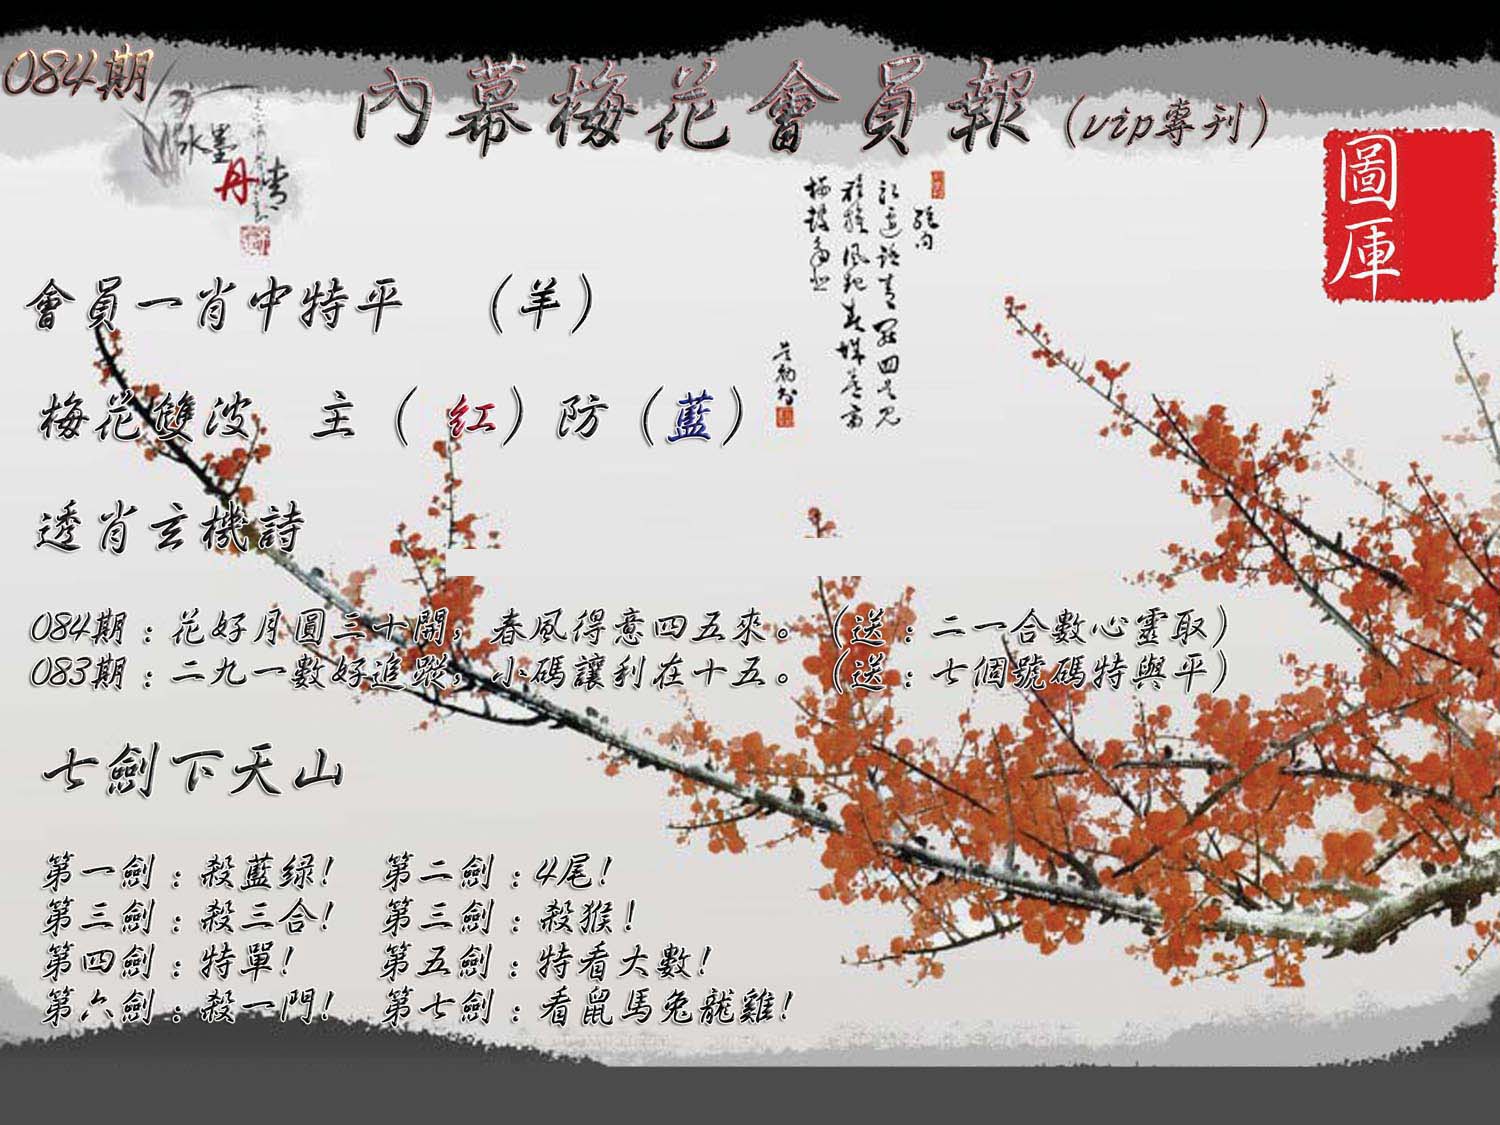 084期
內幕梅花會員報(vip專刊)
水墨
丹情
圖庫
會員一肖中特平 (羊)
梅花雙波 主(紅)防(藍)
透肖玄機詩
084期:花好月圓三十開,春風得意四五來。(送:二一合數心靈取)
083期:二九一數好追蹤,小碼讓利在十五。(送:七個號碼特與平)
七劍下天山
第一劍:殺藍绿! 第二劍:4尾!
第三劍:殺三合! 第三劍:殺猴!
第四劍:特單! 第五劍:特看大數!
第六劍:殺一門! 第七劍:看鼠馬兔龍雞!